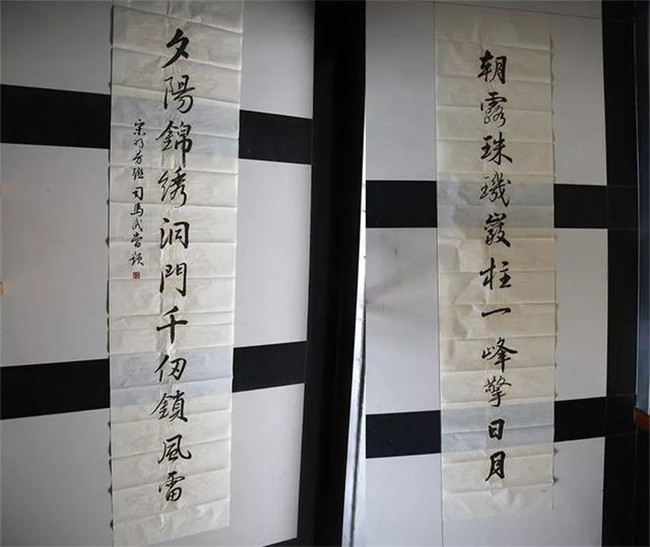 朝露珠璣巖柱一峰擎日月
夕陽錦綉洞門千仞鎖風雷
司馬武當